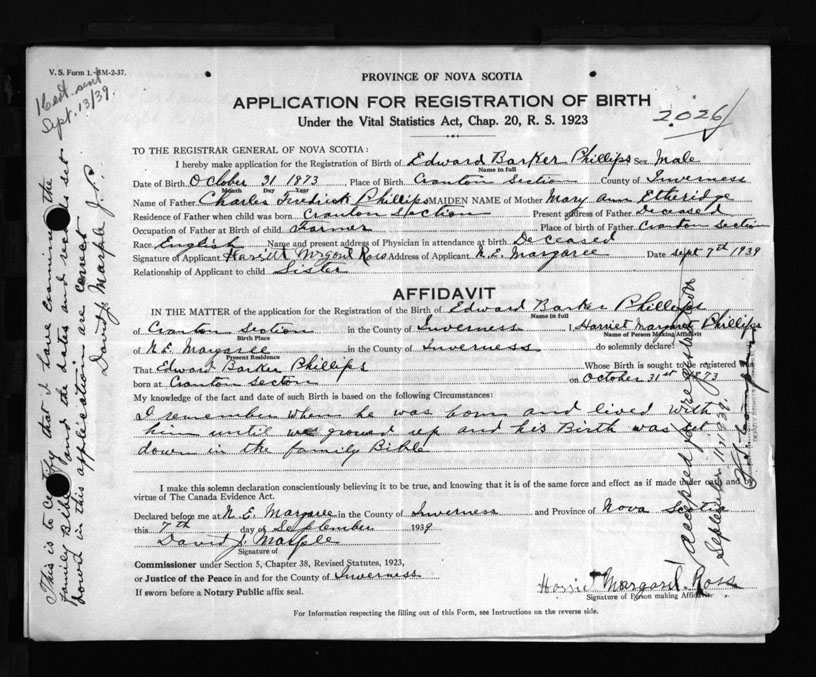 V. S. Form 1.-3M-2-37.
PROVINCE OF NOVA SCOTIA
APPLICATION FOR REGISTRATION OF BIRTH
Under the Vital Statistics Act, Chap. 20, R. S. 1923
2026
sent
Sept. 13/39.
TO THE REGISTRAR GENERAL OF NOVA SCOTIA:
I hereby make application for the Registration of Birth of Edward Barker Phillips Sex Male
Name in full
Date of Birth October 31 1873 Place of Birth Cranton Section County of Inverness
Month Day Year
Name of Father Charles Fredrick Phillips MAIDEN NAME of Mother Mary Ann Etheridge
Residence of Father when child was born Cranton Section Present address of Father Deceased
Occupation of Father at Birth of child Farmer Place of birth of Father Cranton Section
Race English Name and present address of Physician in attendance at birth Deceased
Signature of Applicant Harriet Margaret Ross Address of Applicant N.E. Margaree Date Sept 7th 1939
Relationship of Applicant to child Sister
AFFIDAVIT
IN THE MATTER of the application for the Registration of the Birth of Edward Barker Phillips
Name in full
of Cranton Section in the County of Inverness I, Harriet Margaret Phillips
Birth Place Name of Person Making Affidavit
of N.E. Margaree in the County of Inverness do solemnly declare:
Present Residence
That Edward Barker Phillips Whose Birth is sought to be registered was
born at Cranton Secton on October 31st 1873
My knowledge of the fact and date of such Birth is based on the following Circumstances:
I remember when he was born and lived with
him until we growed up and his Birth was set
down in the family Bible
I make this solemn declaration conscientiously believing it to be true, and knowing that it is of the same force and effect as if made under oath and by
virtue of The Canada Evidence Act.
Declared before me at N. E. Margaree in the County of Inverness and Province of Nova Scotia
this 7th day of September 1939
David J. Marple
Signature of
Commissioner under Section 5, Chapter 38, Revised Statutes, 1923,
or Justice of the Peace in and for the County of Inverness
If sworn before a Notary Public affix seal.
Harriet Margaret Ross
Signature of Person making Affidavit
For Information respecting the filling out of this Form, see Instructions on the reverse side.
This is to certify that I have examined the
family Bible and the dates and records set
down in this application are correct
David J. Marple J.P.
Accepted for registration
September 11, 1939.